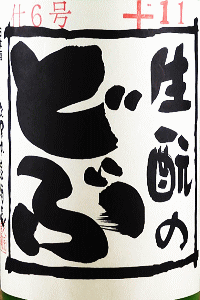 仕6号
十11
生酛の
どぶ